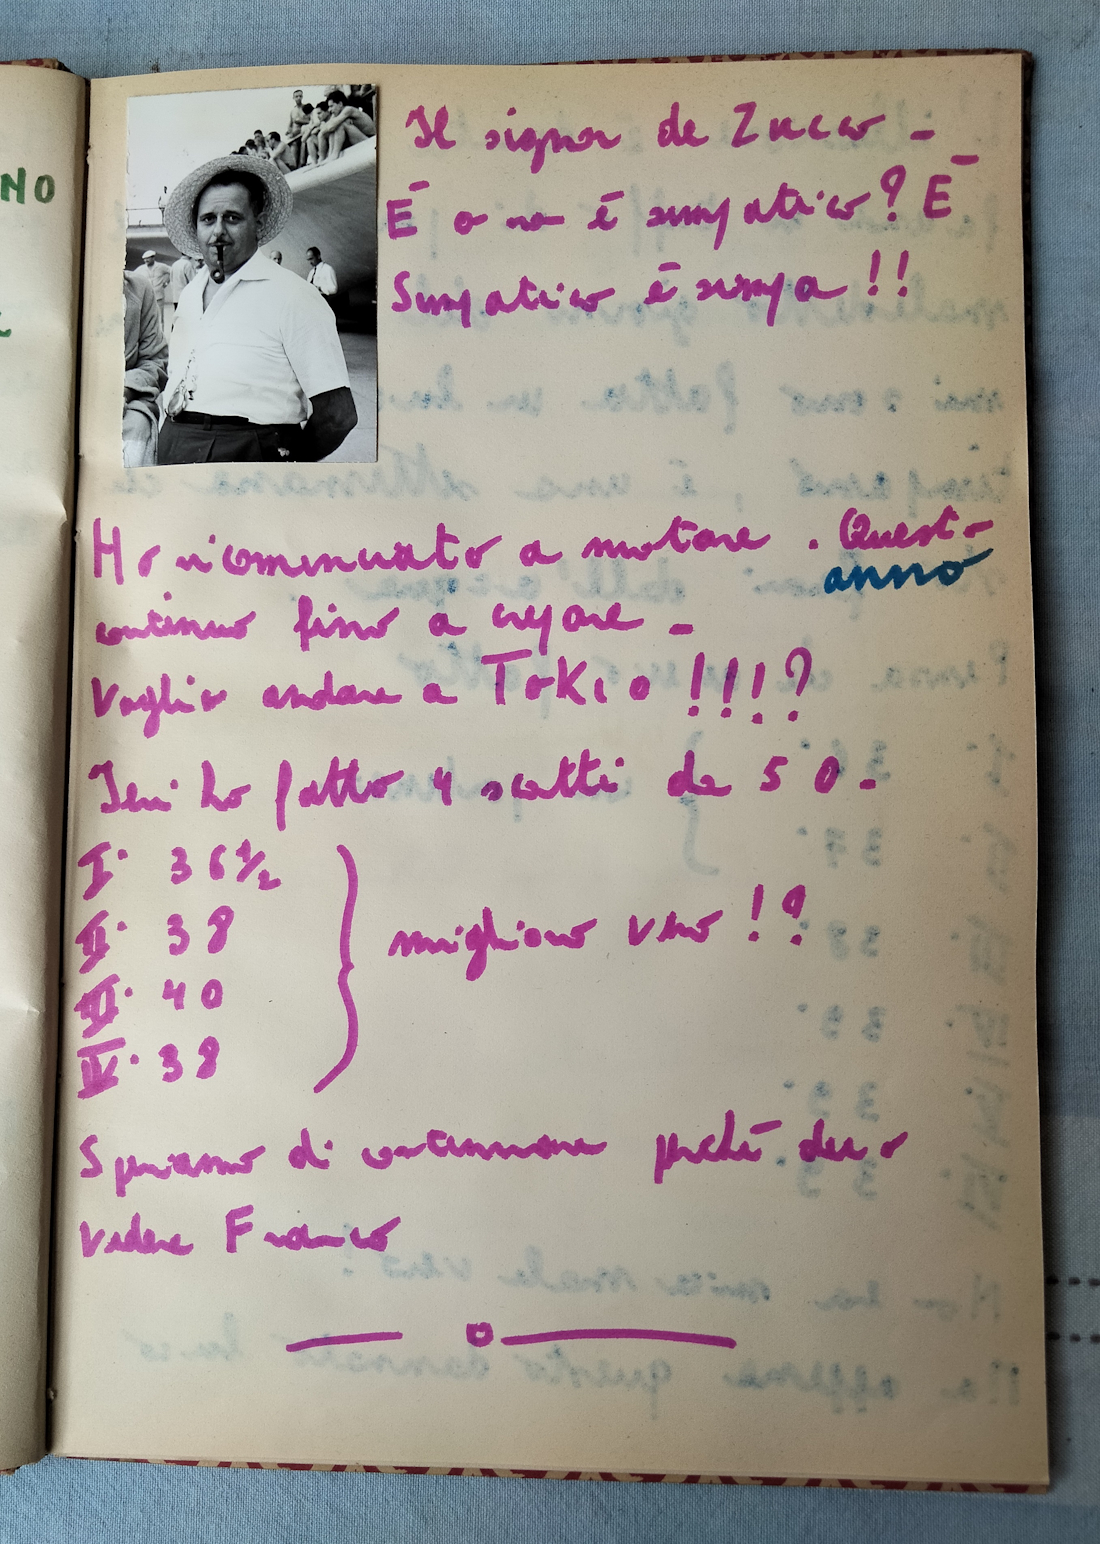 NO
Il signor de Zucco -
È o no è simpatico? È
Simpatico è simpa!!
Ho ricominciato a nuotare. Questo
anno
continuo fino a crepare -
Voglio andare a ToKio !!!!?
Ieri ho fatto 4 scatti da 50.
I° 36 1/2
II° 38
III° 40
IV° 38
miglioro vero !?
Speriamo di continuare perché devo
vedere Franco